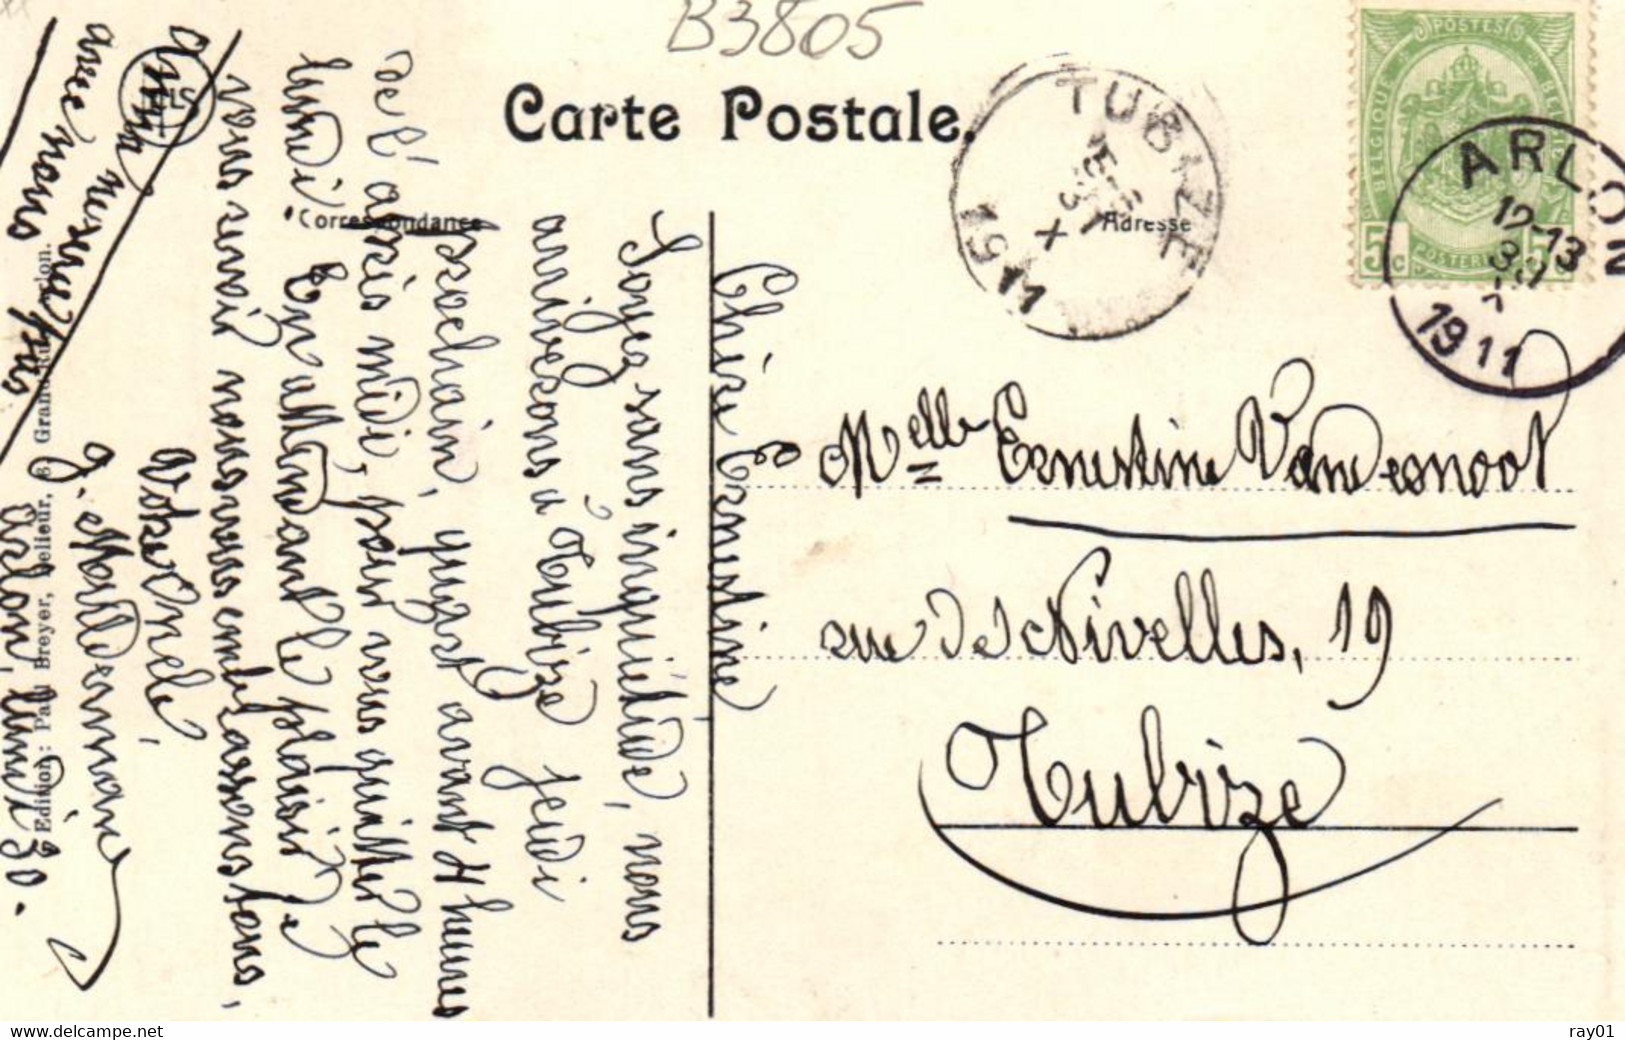 B3805
Carte Postale.
Correspondance
Adresse
TUBIZE
1911
POSTES
BELGIQUE
BELGIE
POSTERIJEN
5c
5c
ARLON
12-13
1911
Melle Ernestine Vandesnoot
rue de Nivelles, 19
Tubize
Chère Ernestine
Soyez sans inquiétude, nous
arriverons à Tubize jeudi
prochain, quizst avant 4 heures
de l'après midi, pour vous quitter le
lundi. En attendant le plaisir de
vous revoir nous vous embrassons tous,
Votre oncle,
J. Mulderman
Arlon, lundi 30.
Anna
avec nous
Edition: Paul Breyer, relieur, 8, Grand
www.delcampe.net
ray01